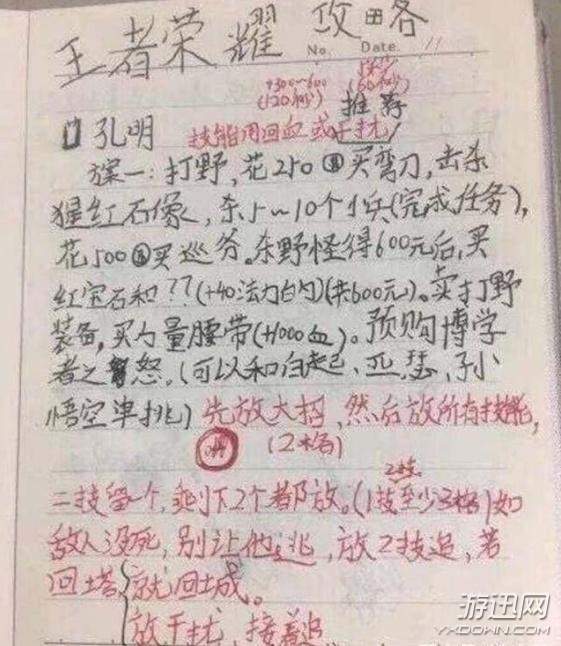 王者荣耀 攻略
No. Date. 11
+300~600
(120秒) (60秒)
推荐
口孔明 技能用回血或干扰
方案一:打野,花250买弯刀,击杀
猩红石像,杀5~10个小兵(完成任务),
花500买巡穷.杀野怪得600元后,买
红宝石和??(+40法力白勺)(共600元)。卖打野
装备,买力量腰带(+1000血)。预购博学
者之怒。(可以和白起、亚瑟、孙
悟空单挑)先放大招,然后放所有技能,
(2格)
二技留一个,剩下2个都放。(1技至少3格)如
2技
敌人没死,别让他逃,放2技追,若
回塔就回城。
放干扰,接着追
游迅网
YXDOWN.COM